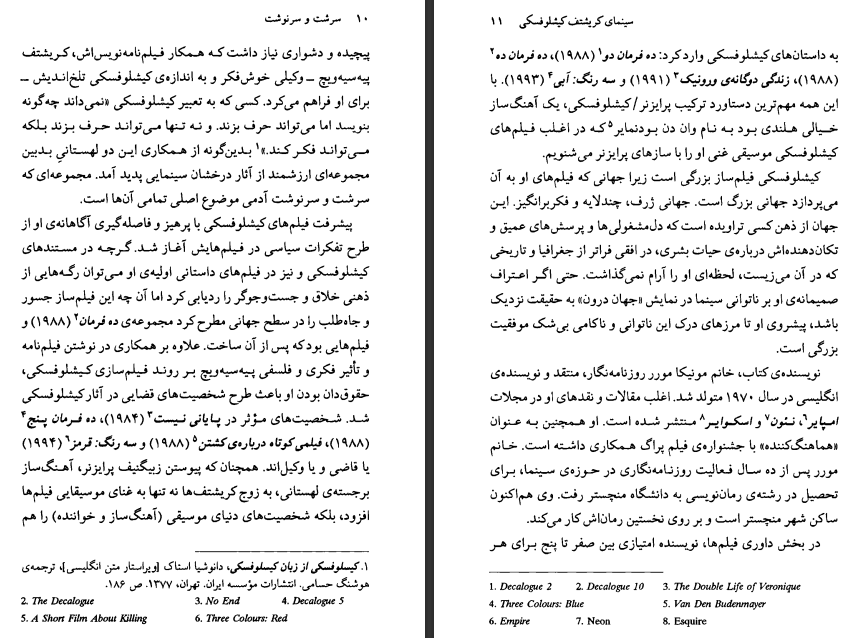 ۱۰ سرشت و سرنوشت
پیچیده و دشواری نیاز داشت که همکار فیلم‌نامه‌نویس‌اش، کریشتف
پیه‌سیه‌ویچ ــ وکیلی خوش‌فکر و به اندازه‌ی کیشلوفسکی تلخ‌اندیش ــ
برای او فراهم می‌کرد. کسی که به تعبیر کیشلوفسکی «نمی‌داند چه‌گونه
بنویسد اما می‌تواند حرف بزند. و نه تنها می‌تواند حرف بزند بلکه
می‌تواند فکر کند.»۱ بدین‌گونه از همکاری این دو لهستانیِ بدبین
مجموعه‌ای ارزشمند از آثار درخشان سینمایی پدید آمد. مجموعه‌ای که
سرشت و سرنوشت آدمی موضوع اصلی تمامی آن‌ها است.
پیشرفت فیلم‌های کیشلوفسکی با پرهیز و فاصله‌گیری آگاهانه‌ی او از
طرح تفکرات سیاسی در فیلم‌هایش آغاز شد. گرچه در مستندهای
کیشلوفسکی و نیز در فیلم‌های داستانی اولیه‌ی او می‌توان رگه‌هایی از
ذهنی خلاق و جست‌وجوگر را ردیابی کرد اما آن چه این فیلم‌ساز جسور
و جاه‌طلب را در سطح جهانی مطرح کرد مجموعه‌ی ده فرمان۲ (۱۹۸۸) و
فیلم‌هایی بود که پس از آن ساخت. علاوه بر همکاری در نوشتن فیلم‌نامه
و تأثیر فکری و فلسفی پیه‌سیه‌ویچ بر روند فیلم‌سازی کیشلوفسکی،
حقوق‌دان بودن او باعث طرح شخصیت‌های قضایی در آثار کیشلوفسکی
شد. شخصیت‌های مؤثر در پایانی نیست۳ (۱۹۸۴)، ده فرمان پنج۴
(۱۹۸۸)، فیلمی کوتاه درباره‌ی کشتن۵ (۱۹۸۸) و سه رنگ: قرمز۶ (۱۹۹۴)
یا قاضی و یا وکیل‌اند. همچنان که پیوستن زبیگنیف پرایزنر، آهنگ‌ساز
برجسته‌ی لهستانی، به زوج کریشتف‌ها نه تنها به غنای موسیقایی فیلم‌ها
افزود، بلکه شخصیت‌های دنیای موسیقی (آهنگ‌ساز و خواننده) را هم
۱. کیسلوفسکی از زبان کیسلوفسکی، دانوشیا استاک [ویراستار متن انگلیسی]، ترجمه‌ی
هوشنگ حسامی. انتشارات مؤسسه ایران. تهران، ۱۳۷۷. ص ۱۸۶.
2. The Decalogue 3. No End 4. Decalogue 5
5. A Short Film About Killing 6. Three Colours: Red
سینمای کریشتف کیشلوفسکی ۱۱
به داستان‌های کیشلوفسکی وارد کرد: ده فرمان دو۱ (۱۹۸۸)، ده فرمان ده۲
(۱۹۸۸)، زندگی دوگانه‌ی ورونیک۳ (۱۹۹۱) و سه رنگ: آبی۴ (۱۹۹۳). با
این همه مهم‌ترین دستاورد ترکیب پرایزنر/کیشلوفسکی، یک آهنگ‌ساز
خیالی هلندی بود به نام وان دن بودنمایر۵ که در اغلب فیلم‌های
کیشلوفسکی موسیقی غنی او را با سازهای پرایزنر می‌شنویم.
کیشلوفسکی فیلم‌ساز بزرگی است زیرا جهانی که فیلم‌های او به آن
می‌پردازد جهانی بزرگ است. جهانی ژرف، چندلایه و فکربرانگیز. این
جهان از ذهن کسی تراویده است که دل‌مشغولی‌ها و پرسش‌های عمیق و
تکان‌دهنده‌اش درباره‌ی حیات بشری، در افقی فراتر از جغرافیا و تاریخی
که در آن می‌زیست، لحظه‌ای او را آرام نمی‌گذاشت. حتی اگر اعتراف
صمیمانه‌ی او بر ناتوانی سینما در نمایش «جهان درون» به حقیقت نزدیک
باشد، پیشروی او تا مرزهای درک این ناتوانی و ناکامی بی‌شک موفقیت
بزرگی است.
نویسنده‌ی کتاب، خانم مونیکا مورر روزنامه‌نگار، منتقد و نویسنده‌ی
انگلیسی در سال ۱۹۷۰ متولد شد. اغلب مقالات و نقدهای او در مجلات
امپایر۶، نئون۷ و اسکوایر۸ منتشر شده است. او همچنین به عنوان
«هماهنگ‌کننده» با جشنواره‌ی فیلم پراگ همکاری داشته است. خانم
مورر پس از ده سال فعالیت روزنامه‌نگاری در حوزه‌ی سینما، برای
تحصیل در رشته‌ی رمان‌نویسی به دانشگاه منچستر رفت. وی هم‌اکنون
ساکن شهر منچستر است و بر روی نخستین رمان‌اش کار می‌کند.
در بخش داوری فیلم‌ها، نویسنده امتیازی بین صفر تا پنج برای هر
1. Decalogue 2 2. Decalogue 10 3. The Double Life of Veronique
4. Three Colours: Blue 5. Van Den Budenmayer
6. Empire 7. Neon 8. Esquire